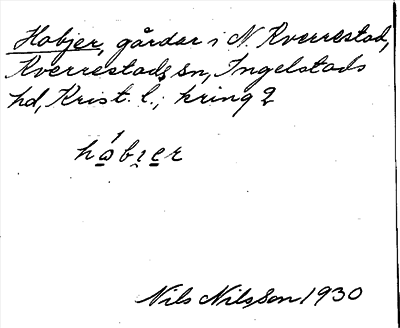 Habjer, gårdar i N. Kverrestad,
Kverrestads sn, Ingelstads
hd, Krist. l.; kring 2
Nils Nilsson 1930